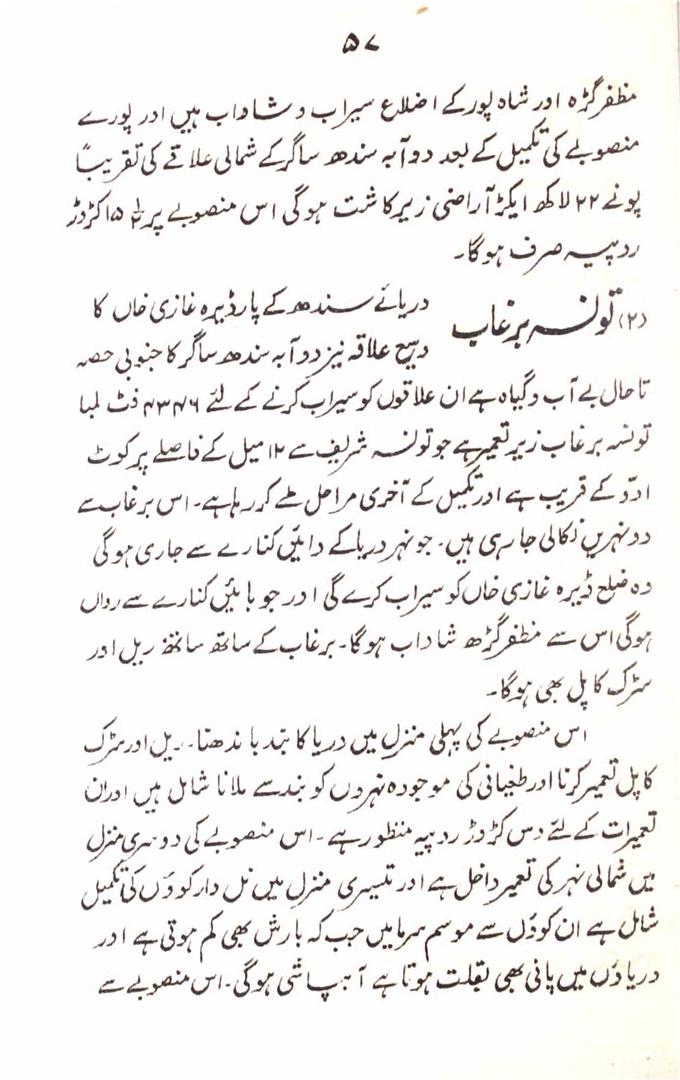 ۵۷
مظفر گڑھ اور شاہ پور کے اضلاع سیراب و شاداب ہیں اور پورے
منصوبے کی تکمیل کے بعد دوآبہ سندھ ساگر کے شمالی علاقے کی تقریباً
پونے ۲۲ لاکھ ایکڑ آراضی زیر کاشت ہوگی اس منصوبے پر ۱۵½ کروڑ
روپیہ صرف ہوگا۔
(۲) تونسہ برغاب دریائے سندھ کے پار ڈیرہ غازی خاں کا
وسیع علاقہ نیز دوآبہ سندھ ساگر کا جنوبی حصہ
تاحال بے آب و گیاہ ہے ان علاقوں کو سیراب کرنے کے لئے ۴۳۴۶ فٹ لمبا
تونسہ برغاب زیر تعمیر ہے جو تونسہ شریف سے ۱۲ میل کے فاصلے پر کوٹ
ادّو کے قریب ہے اور تکمیل کے آخری مراحل طے کر رہا ہے۔ اس برغاب سے
دو نہریں نکالی جا رہی ہیں۔ جو نہر دریا کے دائیں کنارے سے جاری ہوگی
وہ ضلع ڈیرہ غازی خاں کو سیراب کرے گی اور جو بائیں کنارے سے رواں
ہوگی اس سے مظفر گڑھ شاداب ہوگا۔ برغاب کے ساتھ ساتھ ریل اور
سڑک کا پل بھی ہوگا۔
اس منصوبے کی پہلی منزل میں دریا کا بند باندھنا۔ ریل اور سڑک
کا پل تعمیر کرنا اور طغیانی کی موجودہ نہروں کو بند سے ملانا شامل ہیں اور ان
تعمیرات کے لئے دس کروڑ روپیہ منظور ہے۔ اس منصوبے کی دوسری منزل
میں شمالی نہر کی تعمیر داخل ہے اور تیسری منزل میں نل دار کوؤں کی تکمیل
شامل ہے ان کوؤں سے موسم سرما میں جب کہ بارش بھی کم ہوتی ہے اور
دریاؤں میں پانی بھی بقلت ہوتا ہے آبپاشی ہوگی۔ اس منصوبے سے